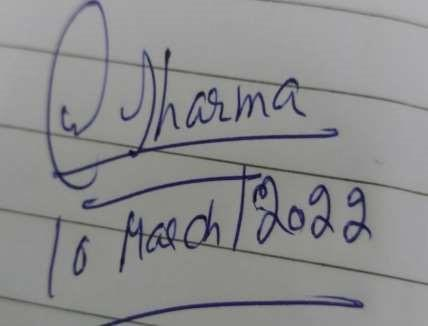 Sharma
10 March/2022